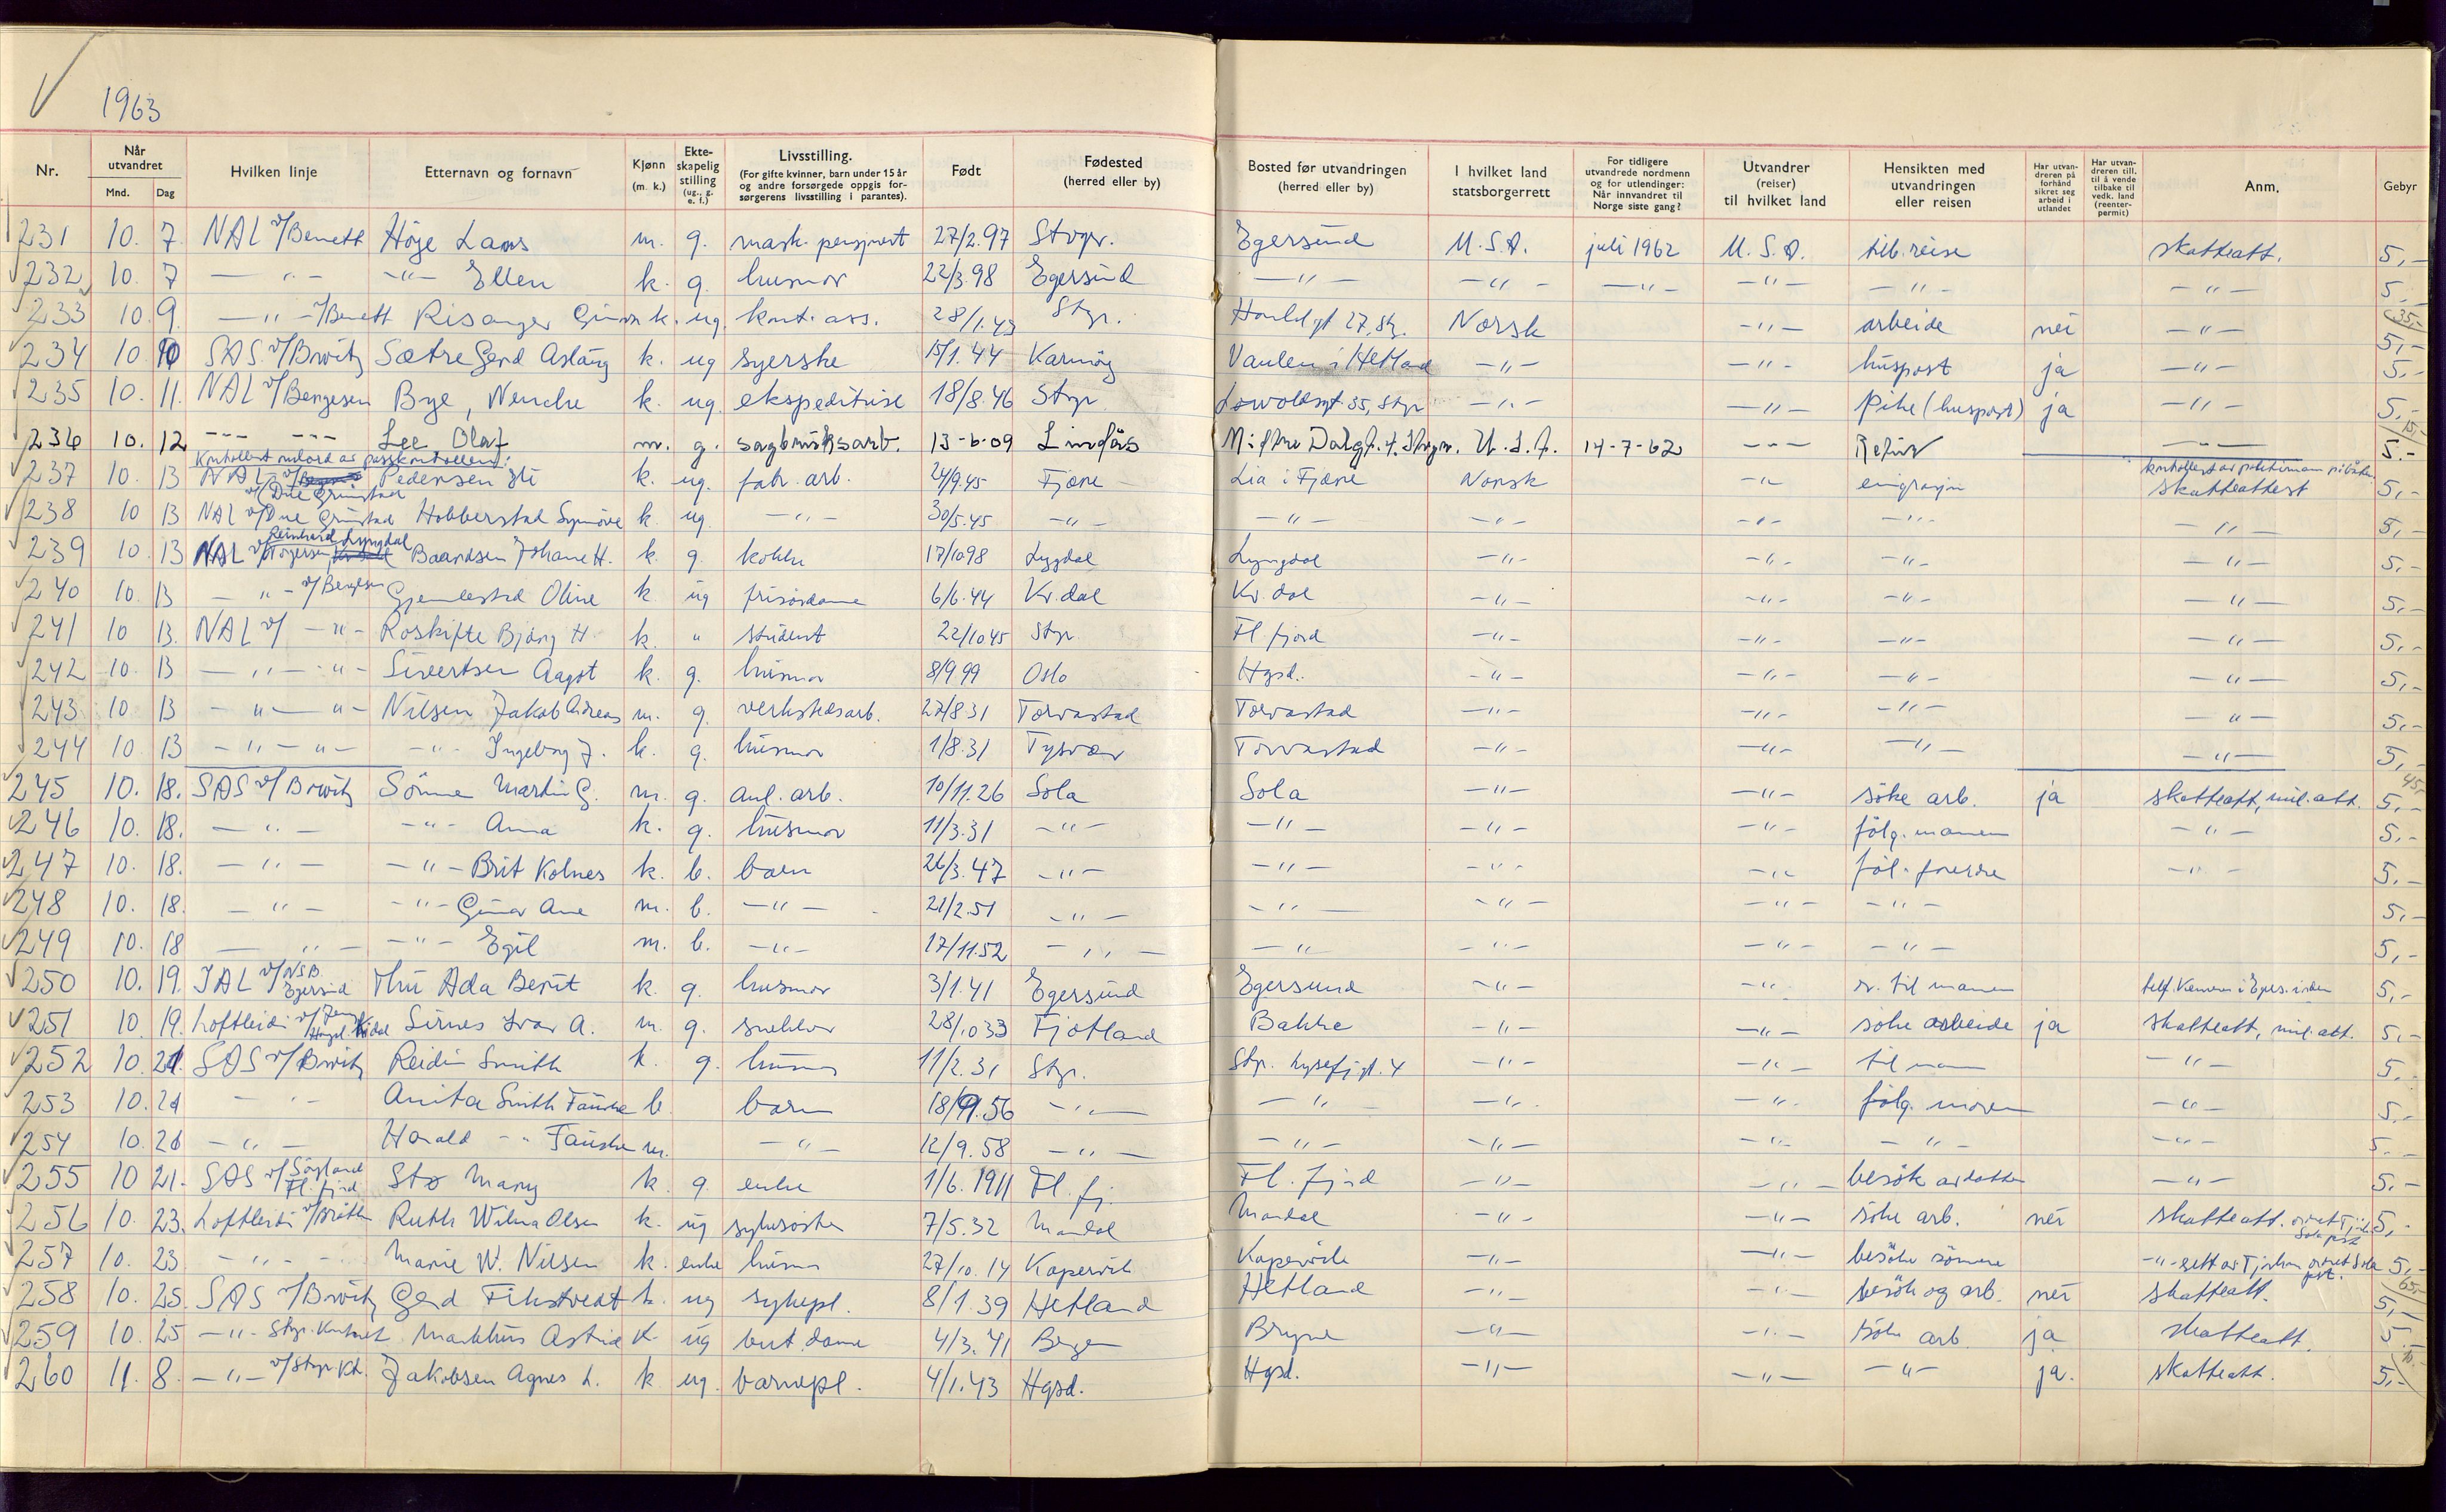 1963
Nr. Når utvandret Mnd. Dag Hvilken linje Etternavn og fornavn Kjønn (m. k.) Ekte-skapelig stilling (ug., g. e. f.) Livsstilling. (For gifte kvinner, barn under 15 år og andre forsørgede oppgis for-sørgerens livsstilling i parantes). Født Fødested (herred eller by) Bosted før utvandringen (herred eller by) I hvilket land statsborgerrett For tidligere utvandrede nordmenn og for utlendinger: Når innvandret til Norge siste gang? Utvandrer (reiser) til hvilket land Hensikten med utvandringen eller reisen Har utvan-dreren på forhånd sikret seg arbeid i utlandet Har utvan-dreren till. til å vende tilbake til vedk. land (reenter-permit) Anm. Gebyr
231 10. 7. NAL v/Benett Høye Lars m. g. mask. 27/2.97 Stvgr. Egersund U.S.A. juli 1962 U.S.A. tilb.reise skatteatt. 5,-
232 10. 7 — " — — " — Ellen k. g. husmor 22/3.98 Egersund — " — — " — — " — — " — — " — — " — 5,-
233 10. 9. — " — v/Benett Risanger k. ug. kont. ass. 28/1.43 Stgr. 27, St. Norsk — " — arbeide nei — " — 35,- 5,-
234 10. 10 SAS v/Brwitz Sætre Gerd Aslaug k. ug syerske 15/1.44 Karmøy Vaulen i Hetland — " — — " — huspost ja — " — 5,-
235 10. 11. NAL v/Bengesen Bye, Wenche k. ug. ekspeditrise 18/8.46 Stgr. Løvoldsgt 35, Stgr — " — — " — Pike (huspost) ja — " — 5,-
236 10. 12 — " — — " — Lee Olaf m. g. sagbruksarb. 13-6-09 Lindås Midtre Dalgt. 4. Stvgr. U.S.A. 14-7-62 — " — Retur — " — 15,- 5.-
Kontrollert ombord av passkontrollen:
237 10. 13 NAL v/Due Grimstad Pedersen k. ug. fabr. arb. 24/9.45 Fjære Lia i Fjære Norsk — " — emigrasjon skatteattest 5,-
238 10 13 NAL v/Due Grimstad Hobberstad Synnøve k. ug. — " — 30/5.45 — " — — " — — " — — " — — " — — " — 5,-
239 10. 13 NAL v/Torgersen Reinhard Lyngdal Baardsen Johane H. k. g. kokke 17/10 98 Lygdal Lyngdal — " — — " — — " — — " — 5,-
240 10. 13 — " — v/Bengesen Gjemlestad Oline k. ug frisördame 6/6.44 Kv. dal Kv. dal — " — — " — — " — — " — 5,-
241 10 13. NAL v/ — " — Roskifte Bjørg H. k. " student 22/10 45 Stgr. Fl. fjord — " — — " — — " — — " — 5,-
242 10. 13 — " — " — Sivertsen Aagot k. g. husmor 8/9 99 Oslo Hgsd. — " — — " — — " — — " — 5,-
243 10 13 — " — " — Nilsen Jakob Andreas m. g. verkstedsarb. 27/8 31 Torvastad Torvastad — " — — " — — " — — " — 5,-
244 10. 13 — " — " — — " — Ingeborg J. k. g. husmor 1/8.31 Tysvær Torvastad — " — — " — — " — — " — 5,-
245 10. 18. SAS v/Brwitz Sömme Martin G. m. g. anl. arb. 10/11.26 Sola Sola — " — — " — söke arb. ja skatteatt, mil. att. 45,- 5,-
246 10. 18. — " — — " — Anna k. g. husmor 11/3.31 — " — — " — — " — — " — fölg. mannen — " — 5,-
247 10. 18. — " — — " — Brit Kolnes k. b. barn 26/3.47 — " — — " — — " — — " — föl. foreldre — " — 5,-
248 10. 18. — " — — " — Gunar Arne m. b. — " — 21/2.51 — " — — " — — " — — " — — " — 5,-
249 10. 18 — " — — " — Egil m. b. — " — 17/11.52 — " — — " — — " — — " — — " — 5,-
250 10. 19. v/NSB Egersund Ada Berit k. g. husmor 3/1.41 Egersund Egersund — " — — " — r. til mannen 5,-
251 10. 19. Loftleidi Sirnes Ivar A. m. g. snekker 28/10 33 Fjotland Bakke — " — — " — söke arbeide ja skatteatt, mil. att. 5,-
252 10. 21. SAS v/Brwitz Reidun Smith k. g. husm 11/2.31 Stgr. Stgr. Lysefj.gt. 4 — " — — " — til mann — " — 5,-
253 10. 21 — " — Anita Smith Fauske k barn 18/9.56 — " — — " — — " — — " — fölg. moren — " — 5,-
254 10. 21 — " — Harald — " — Fauske m. — " — 12/9.58 — " — — " — — " — — " — — " — — " — 5,-
255 10 21. SAS v/Sørland Fl. fjord Stø Mary k. g. enke 1/6.1911 Fl. fj. Fl. fjord — " — — " — besök av datter — " — 5,-
256 10. 23. Loftleidi Ruth Wilma Olsen k. ug sykesøster 7/5.32 Mandal Mandal — " — — " — söke arb. nei skatteatt. 5,-
257 10. 23 — " — Marie W. Nilsen k. enke husm 27/10.14 Kopervik Kopervik — " — — " — besöke sönnene 5,-
258 10. 25. SAS v/Brwitz Gerd Fikstvedt k. ug sykepl. 8/1.39 Hetland Hetland — " — — " — besök og arb. nei skatteatt. 65,- 5,-
259 10. 25 — " — Stgr. Kontoret Markhus Astrid k. ug but.dame 4/3.41 Bergen Bryne — " — — " — söke arb ja skatteatt. 5,-
260 11. 8. — " — v/Stgr Kt. Jakobsen Agnes L. k. ug. barnepl. 4/1.43 Hgsd. Hgsd. — " — — " — — " — ja. skatteatt. 10,- 5,-